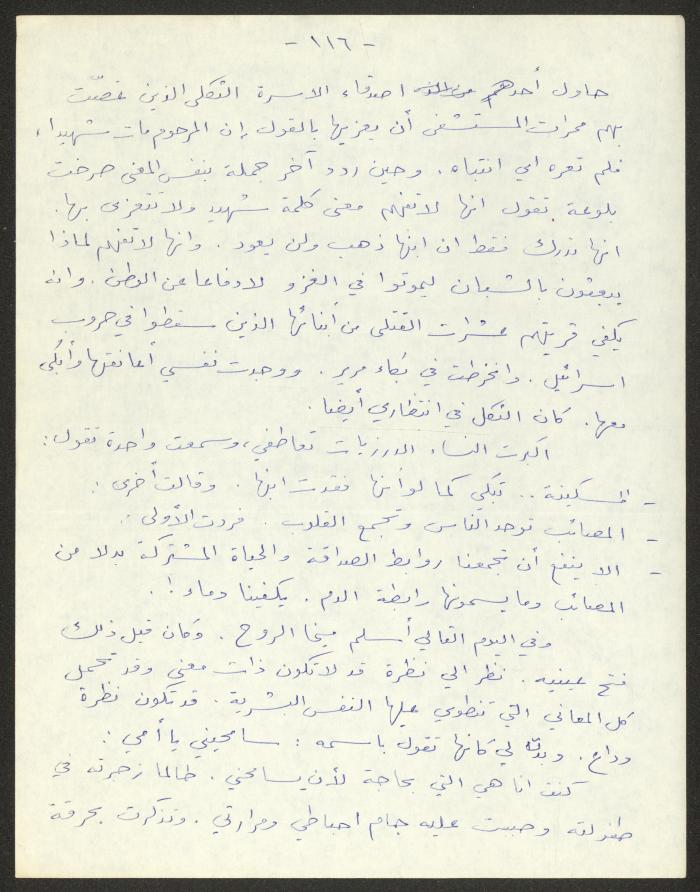 - ١١٦ -
حاول أحدهم من اصدقاء الاسرة الثكلى الذين غصّت
بهم ممرات المستشفى أن يعزيها بالقول إن المرحوم مات شهيدا،
فلم تعره اي انتباه. وحين ردد آخر جملة بنفس المعنى صرخت
بلوعة تقول انها لا تفهم معنى كلمة شهيد ولا تتعزى بها.
انها تدرك فقط ان ابنها ذهب ولن يعود. وانها لا تفهم لماذا
يبعثون بالشبان ليموتوا في الغزو لا دفاعا عن الوطن. وانه
يكفي قريتهم عشرات القتلى من أبنائها الذين سقطوا في حروب
اسرائيل. وانخرطت في بكاء مرير. ووجدت نفسي أعانقها وأبكي
معها. كان الثكل في انتظاري أيضا.
اكبرت النساء الدرزيات تعاطفي، وسمعت واحدة تقول:
- المسكينة .. تبكي كما لو أنها فقدت ابنها. وقالت أخرى:
- المصائب توحد الناس وتجمع القلوب. فردت الأولى:
- الا ينفع أن تجمعنا روابط الصداقة والحياة المشتركة بدلا من
المصائب وما يسمونها رابطة الدم. يكفينا دماء!.
وفي اليوم التالي أسلم ميخا الروح. وكان قبل ذلك
فتح عينيه. نظر الي نظرة قد لا تكون ذات معنى وقد تحمل
كل المعاني التي تنطوي عليها النفس البشرية. قد تكون نظرة
وداع. وبدت لي كأنها تقول باسمه: سامحيني يا أمي:
كنت انا هي التي بحاجة لأن يسامحني. طالما زجرته في
طفولته وصببت عليه جام احباطي ومرارتي. وتذكرت بحرقة